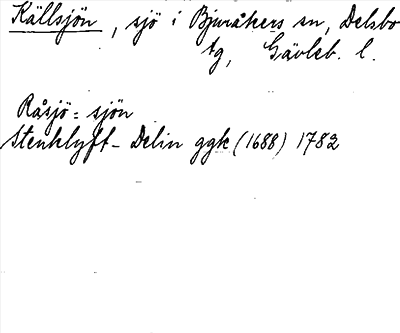 Källsjön, sjö i Bjuråkers sn, Delsbo
tg, Gävleb. l.
Råsjö = sjön
Stenklyft - Delin ggk (1688) 1782